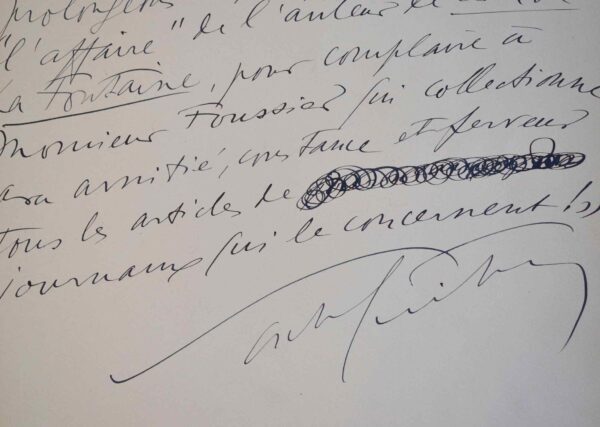 prolongeons
"l'affaire" de l'auteur de
La Fontaine, pour complaire à
Monsieur Foussier qui collectionne
avec amitié, constance et ferveur
tous les articles de
journaux qui le concernent !»
Sacha Guitry